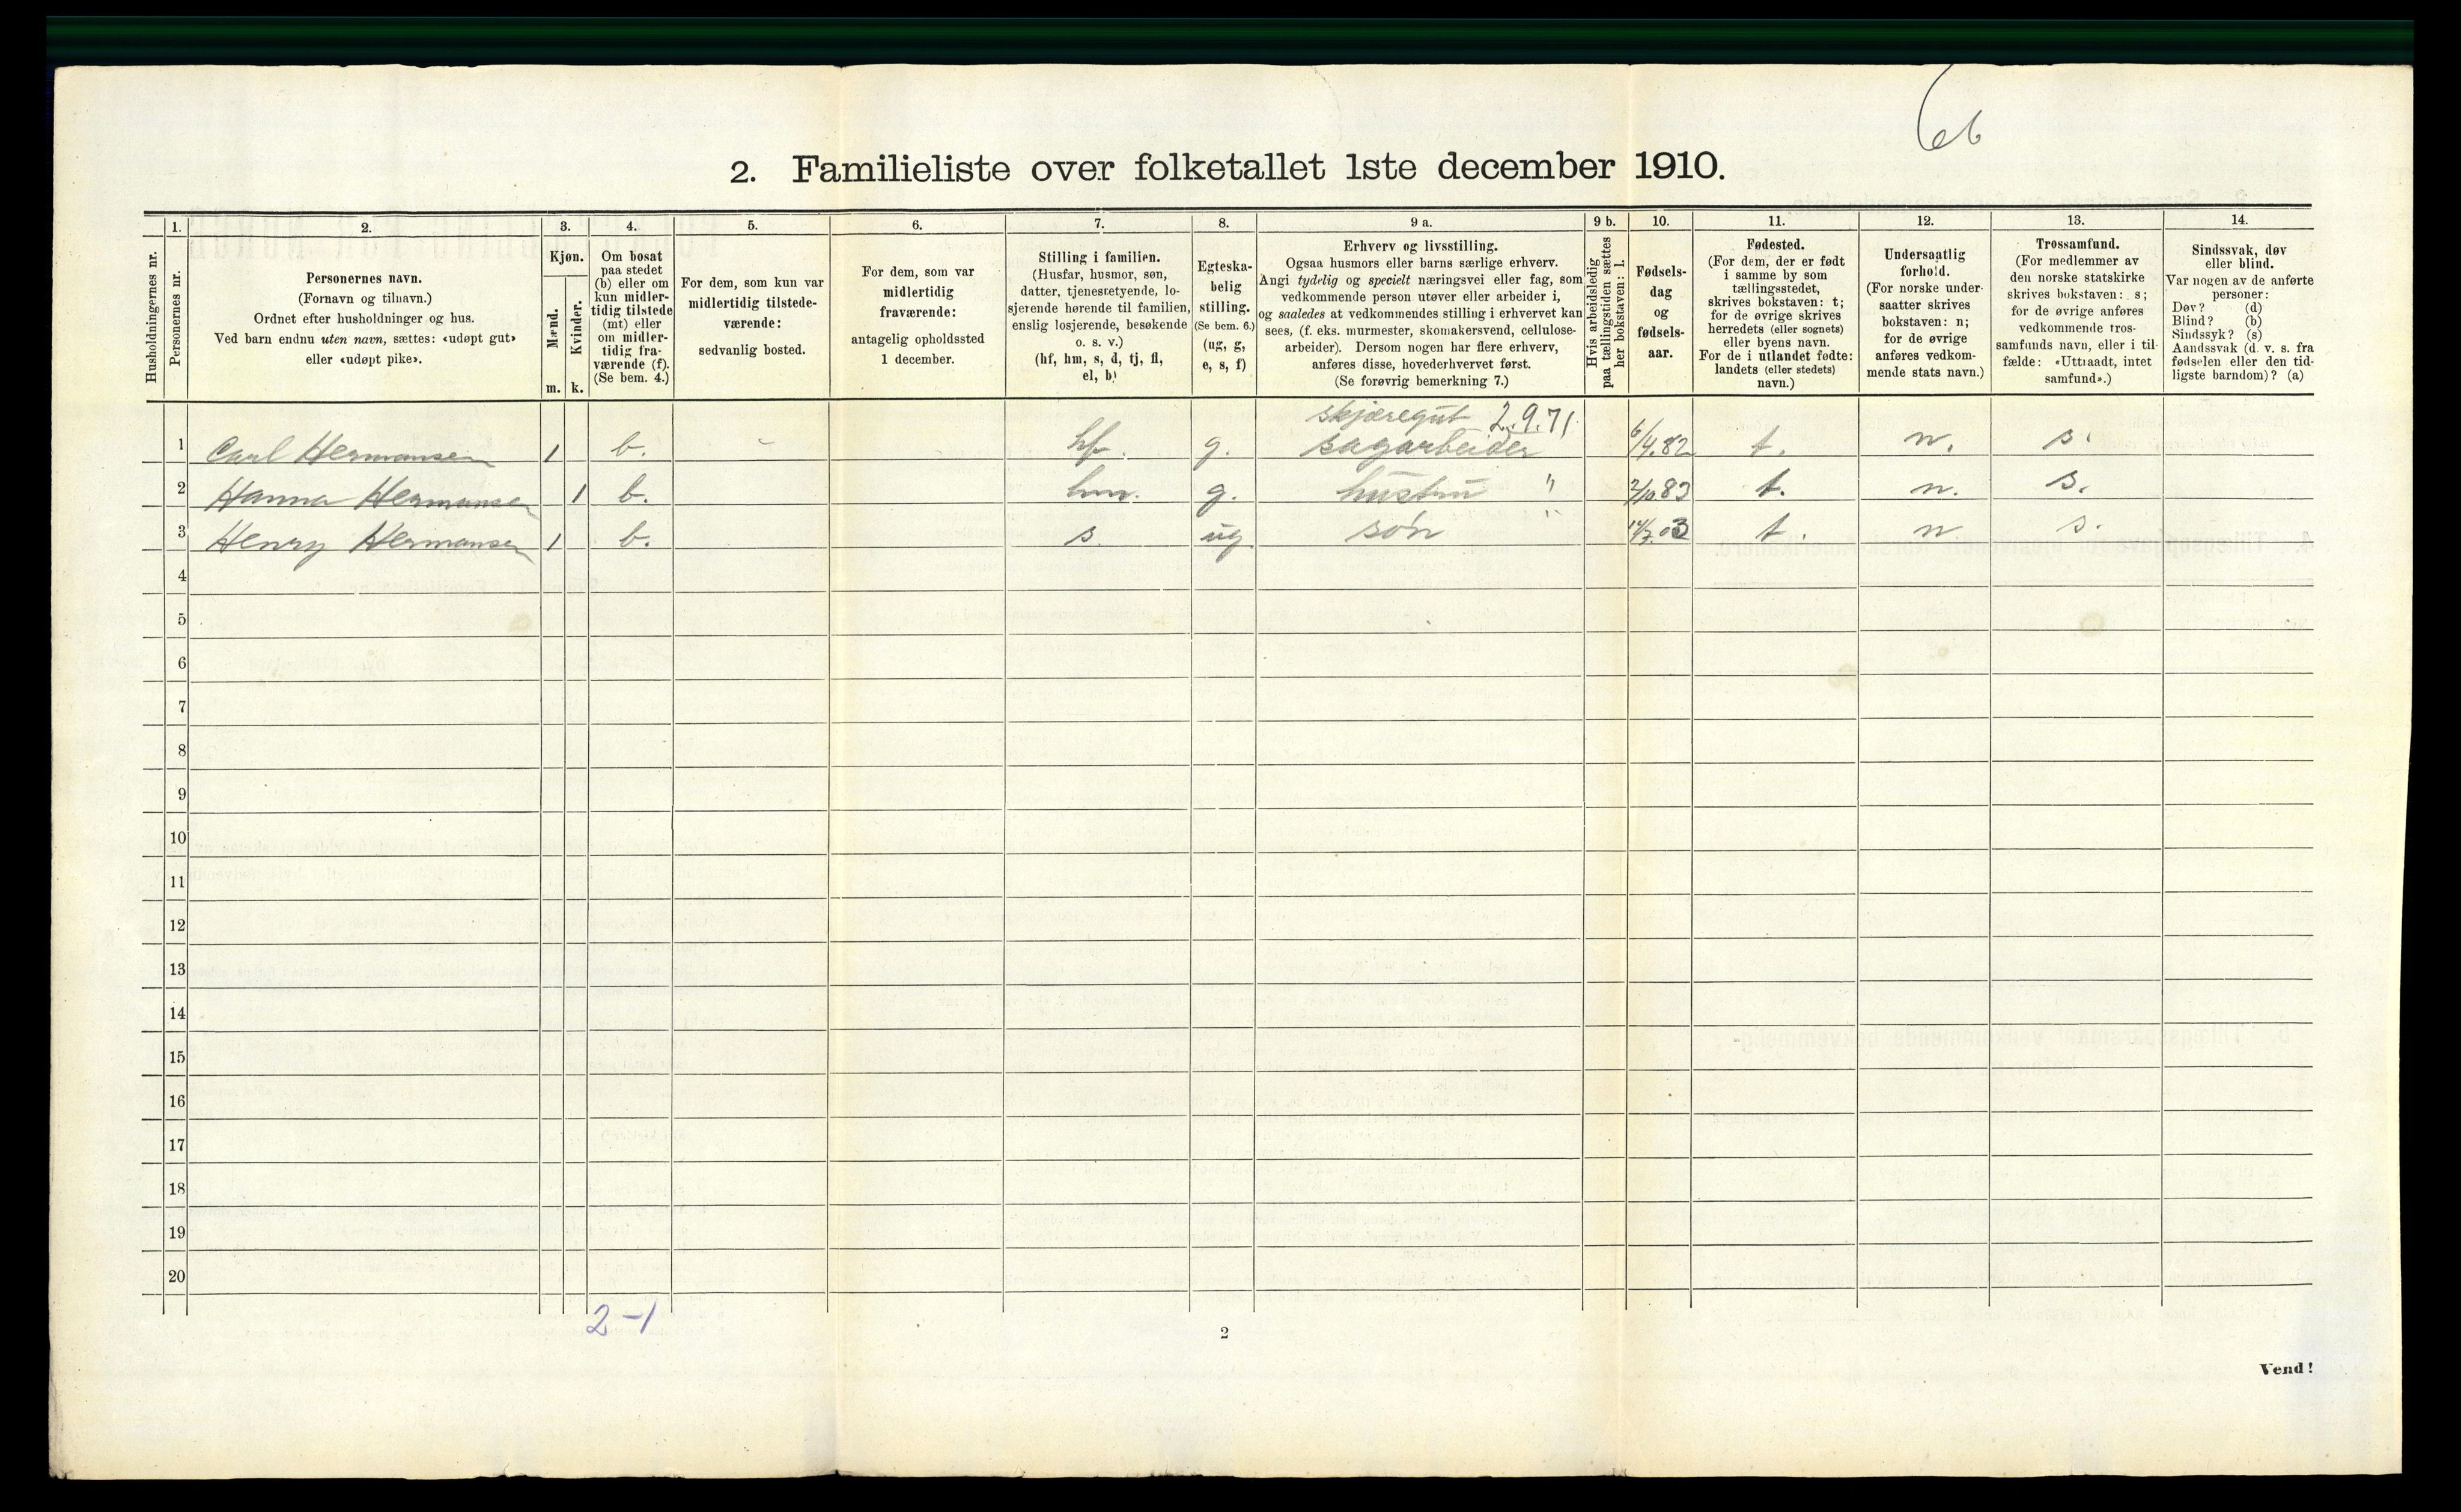 66
2. Familieliste over folketallet 1ste december 1910.
Husholdningernes nr.
1.
Personernes nr.
2.
Personernes navn.
(Fornavn og tilnavn.)
Ordnet efter husholdninger og hus.
Ved barn endnu uten navn, sættes: «udøpt gut»
eller «udøpt pike».
3.
Kjøn.
Mænd.
m.
Kvinder.
k.
4.
Om bosat
paa stedet
(b) eller om
kun midler-
tidig tilstede
(mt) eller
om midler-
tidig fra-
værende (f).
(Se bem. 4.)
5.
For dem, som kun var
midlertidig tilstede-
værende:
sedvanlig bosted.
6.
For dem, som var
midlertidig
fraværende:
antagelig opholdssted
1 december.
7.
Stilling i familien.
(Husfar, husmor, søn,
datter, tjenestetyende, lo-
sjerende hørende til familien,
enslig losjerende, besøkende
o. s. v.)
(hf, hm, s, d, tj, fl,
el, b)
8.
Egteska-
belig
stilling.
(Se bem. 6.)
(ug, g,
e, s, f)
9 a.
Erhverv og livsstilling.
Ogsaa husmors eller barns særlige erhverv.
Angi tydelig og specielt næringsvei eller fag, som
vedkommende person utøver eller arbeider i,
og saaledes at vedkommendes stilling i erhvervet kan
sees, (f. eks. murmester, skomakersvend, cellulose-
arbeider). Dersom nogen har flere erhverv,
anføres disse, hovederhvervet først.
(Se forøvrig bemerkning 7.)
9 b.
Hvis arbeidsledig
paa tællingstiden sættes
her bokstaven: l.
10.
Fødsels-
dag
og
fødsels-
aar.
11.
Fødested.
(For dem, der er født
i samme by som
tællingsstedet,
skrives bokstaven: t;
for de øvrige skrives
herredets (eller sognets)
eller byens navn.
For de i utlandet fødte:
landets (eller stedets)
navn.)
12.
Undersaatlig
forhold.
(For norske under-
saatter skrives
bokstaven: n;
for de øvrige
anføres vedkom-
mende stats navn.)
13.
Trossamfund.
(For medlemmer av
den norske statskirke
skrives bokstaven: s;
for de øvrige anføres
vedkommende tros-
samfunds navn, eller i til-
fælde: «Uttraadt, intet
samfund».)
14.
Sindssvak, døv
eller blind.
Var nogen av de anførte
personer:
Døv? (d)
Blind? (b)
Sindssyk? (s)
Aandssvak (d. v. s. fra
fødselen eller den tid-
ligste barndom)? (a)
skjæregut 2.9.71.
1 Carl Hermansen 1 b. hf. g. sagarbeider 6/4.82 t. n. s.
2 Hanna Hermansen 1 b. hm. g. hustru " 2/10 83 t. n. s.
3 Henry Hermansen 1 b. s. ug søn " 14/7.03 t. n s.
4
5
6
7
8
9
10
11
12
13
14
15
16
17
18
19
20
2-1
2
Vend!